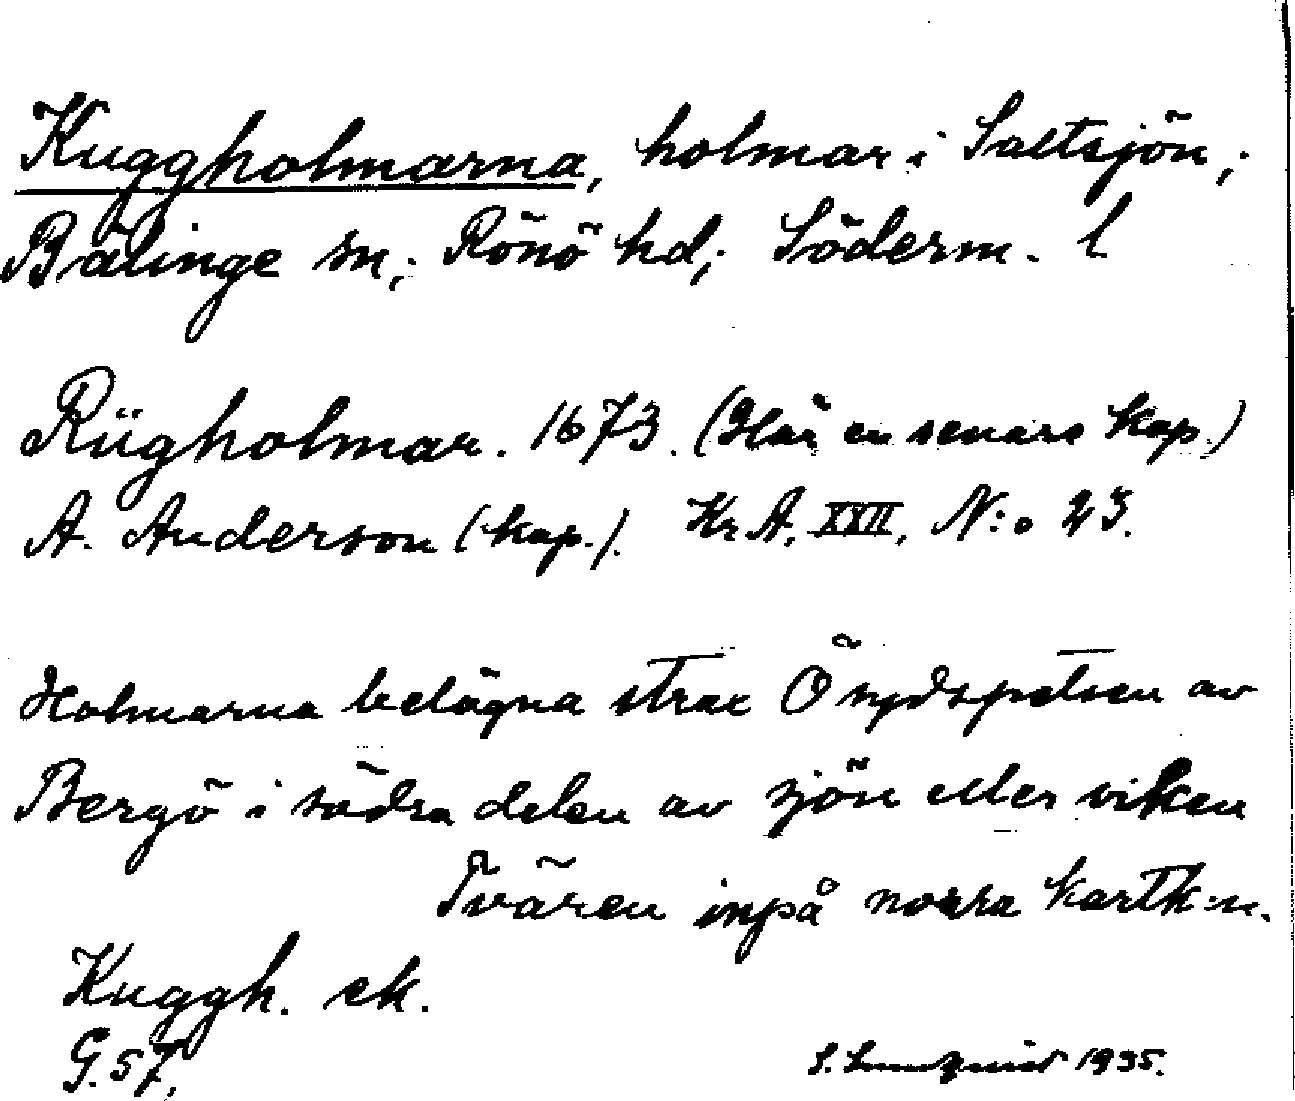 Kuggholmarna, holmar i Saltsjön;
Bälinge sn; Rönö hd; Söderm. l
Rügholmar. 1673. (Här en senare kop.)
A. Anderson (kop.). Kr. A. XXII, N:o 23.
Holmarna belägna strax Ö sydspetsen av
Bergö i södra delen av sjön eller viken
Tvären inpå norra kartk:n.
Kuggh. ek.
G. 57.
S. 1935.